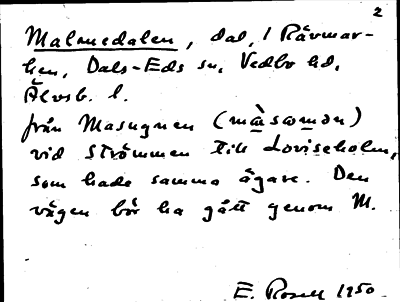 2
Malmedalen, dal, i Råvmar-
ken, Dals-Eds sn, Vedbo hd,
Älvsb. l.
från Masugnen (màsoṃən)
vid Strömmen till Loviseholm,
som hade samma ägare. Den
vägen bör ha gått genom M.
E. Rosell 1950